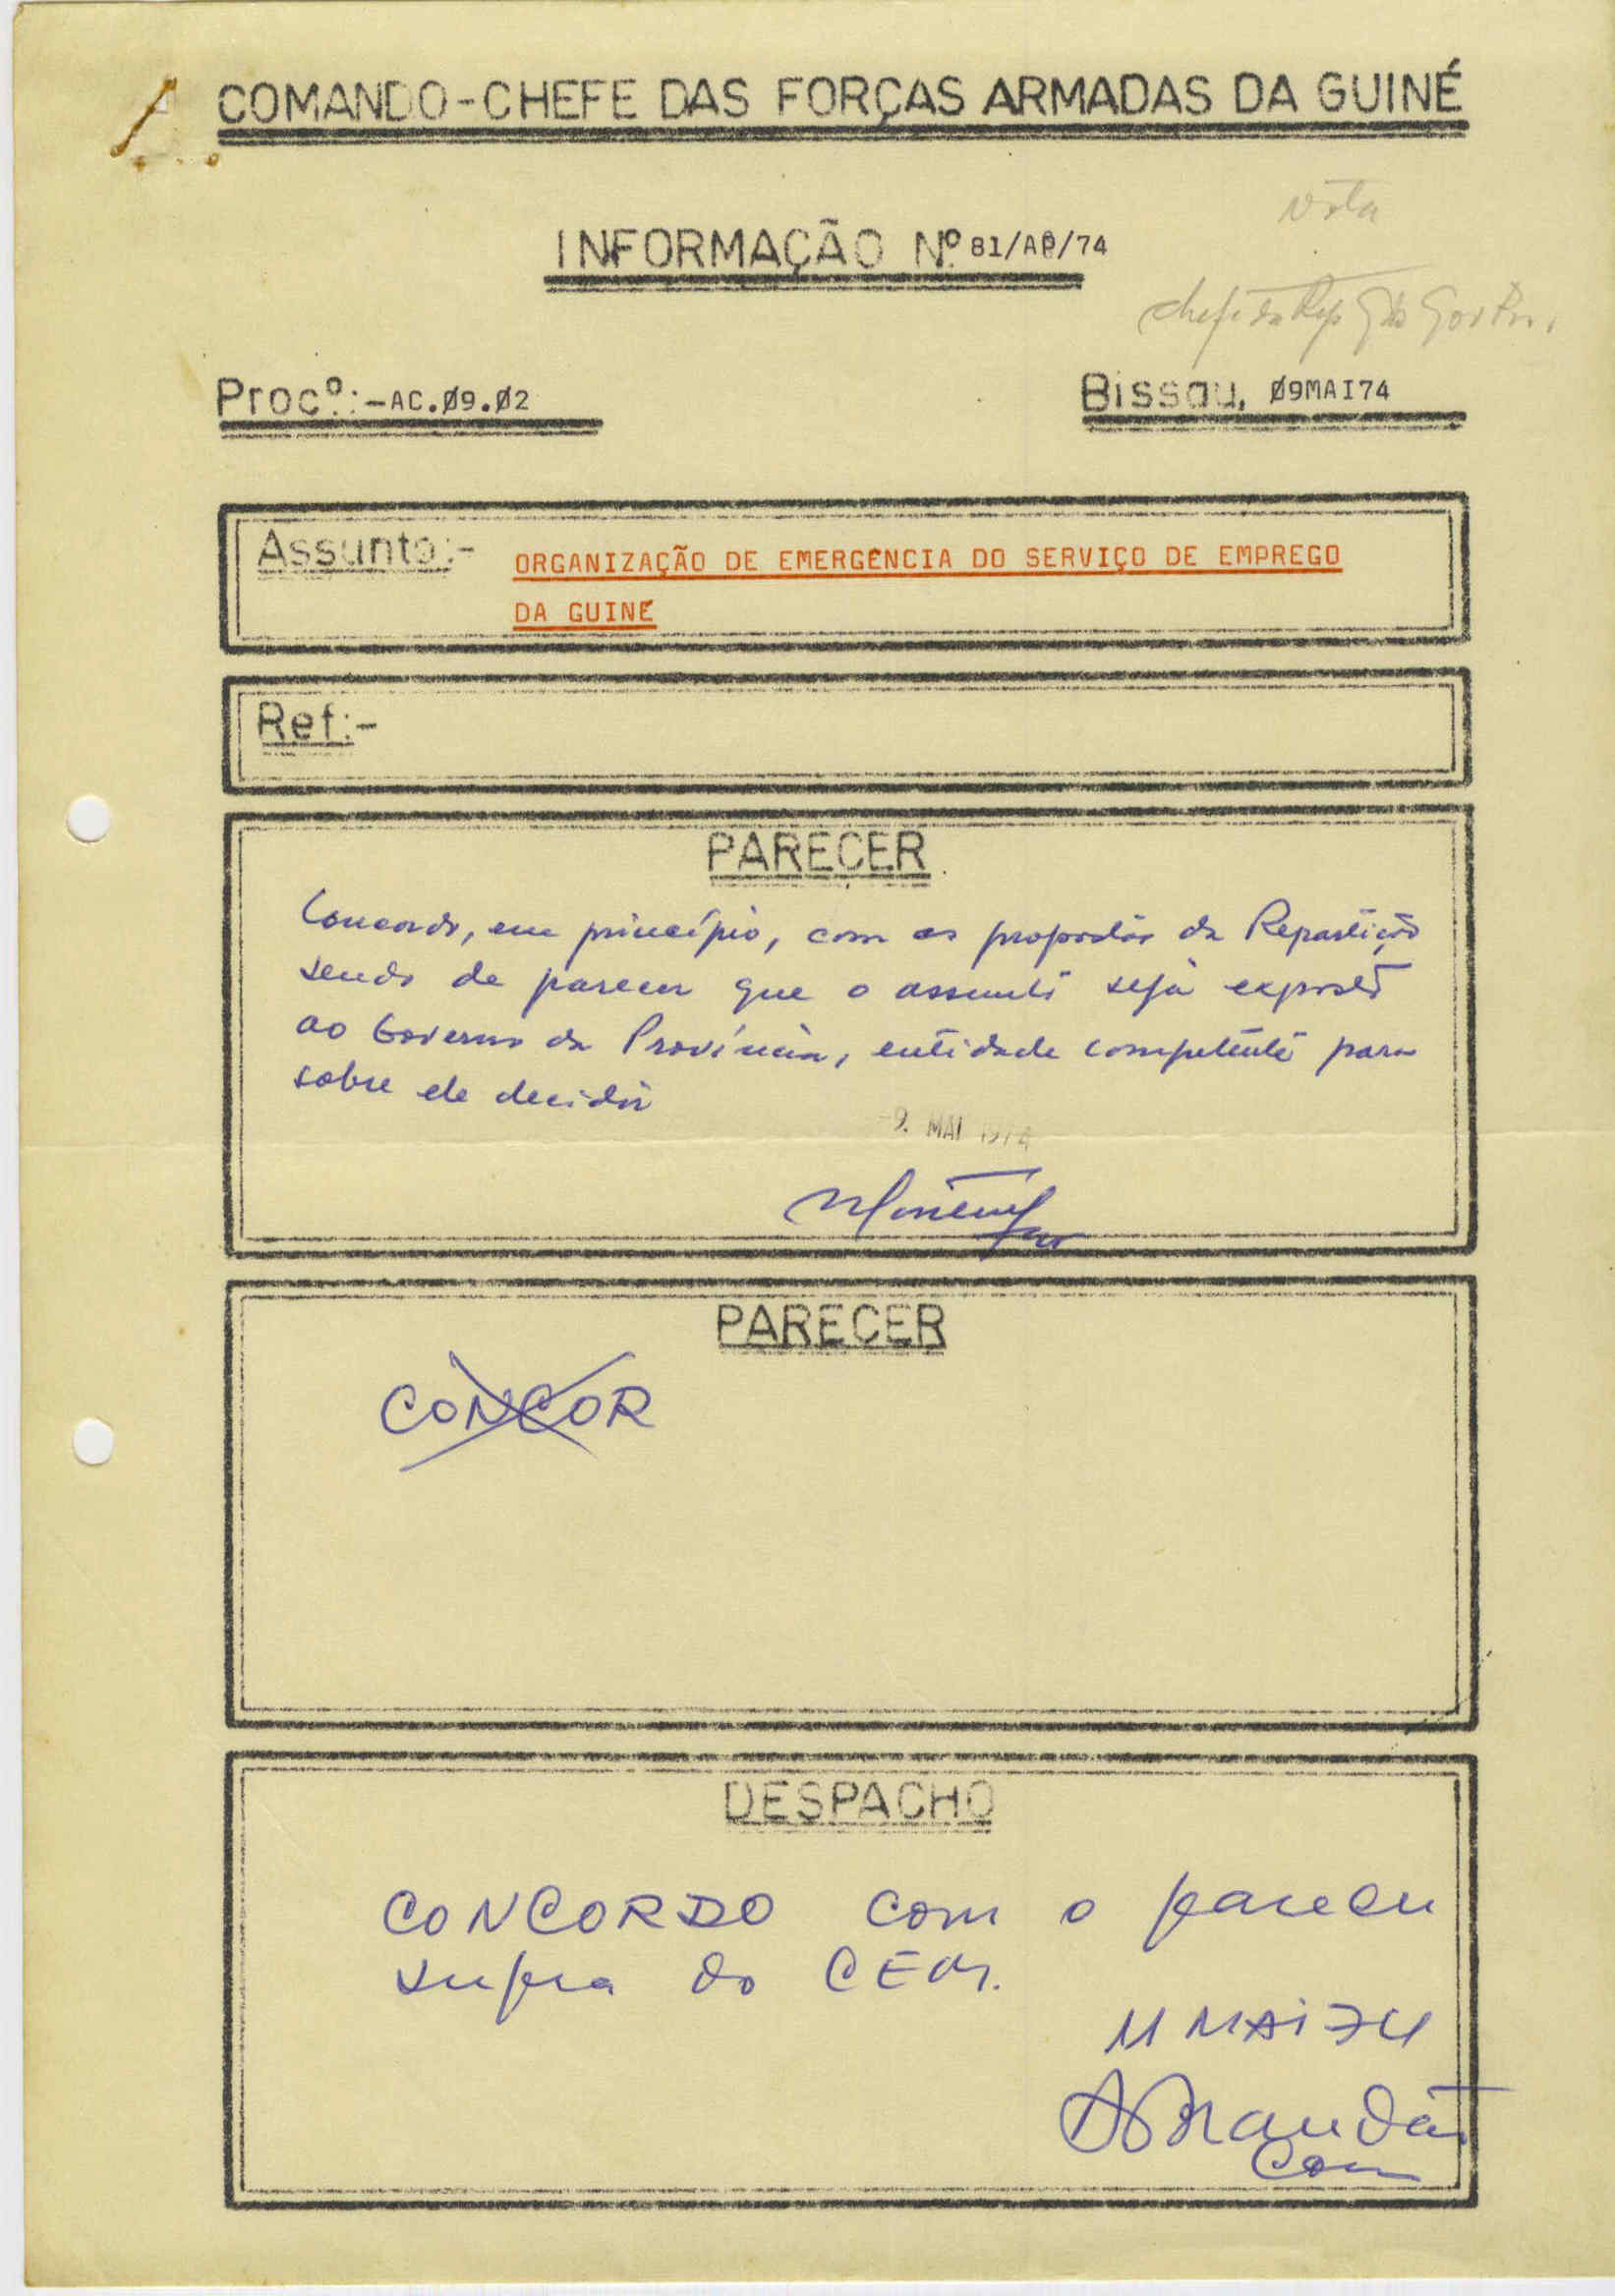 COMANDO-CHEFE DAS FORÇAS ARMADAS DA GUINÉ
Nota
INFORMAÇÃO Nº 81/AP/74
chefe da Rep
Procº:-AC.Ø9.Ø2
Bissau, Ø9MAI74
Assunto:- ORGANIZAÇÃO DE EMERGENCIA DO SERVIÇO DE EMPREGO
DA GUINÉ
Ref:-
PARECER
Concordo, em princípio, com as propostas da Repartição
sendo de parecer que o assunto seja exposto
ao Governo da Província, entidade competente para
sobre ele decidir
-9. MAI 1974
PARECER
CONCOR
DESPACHO
CONCORDO com o parecer
supra do CEM.
11 MAI 74